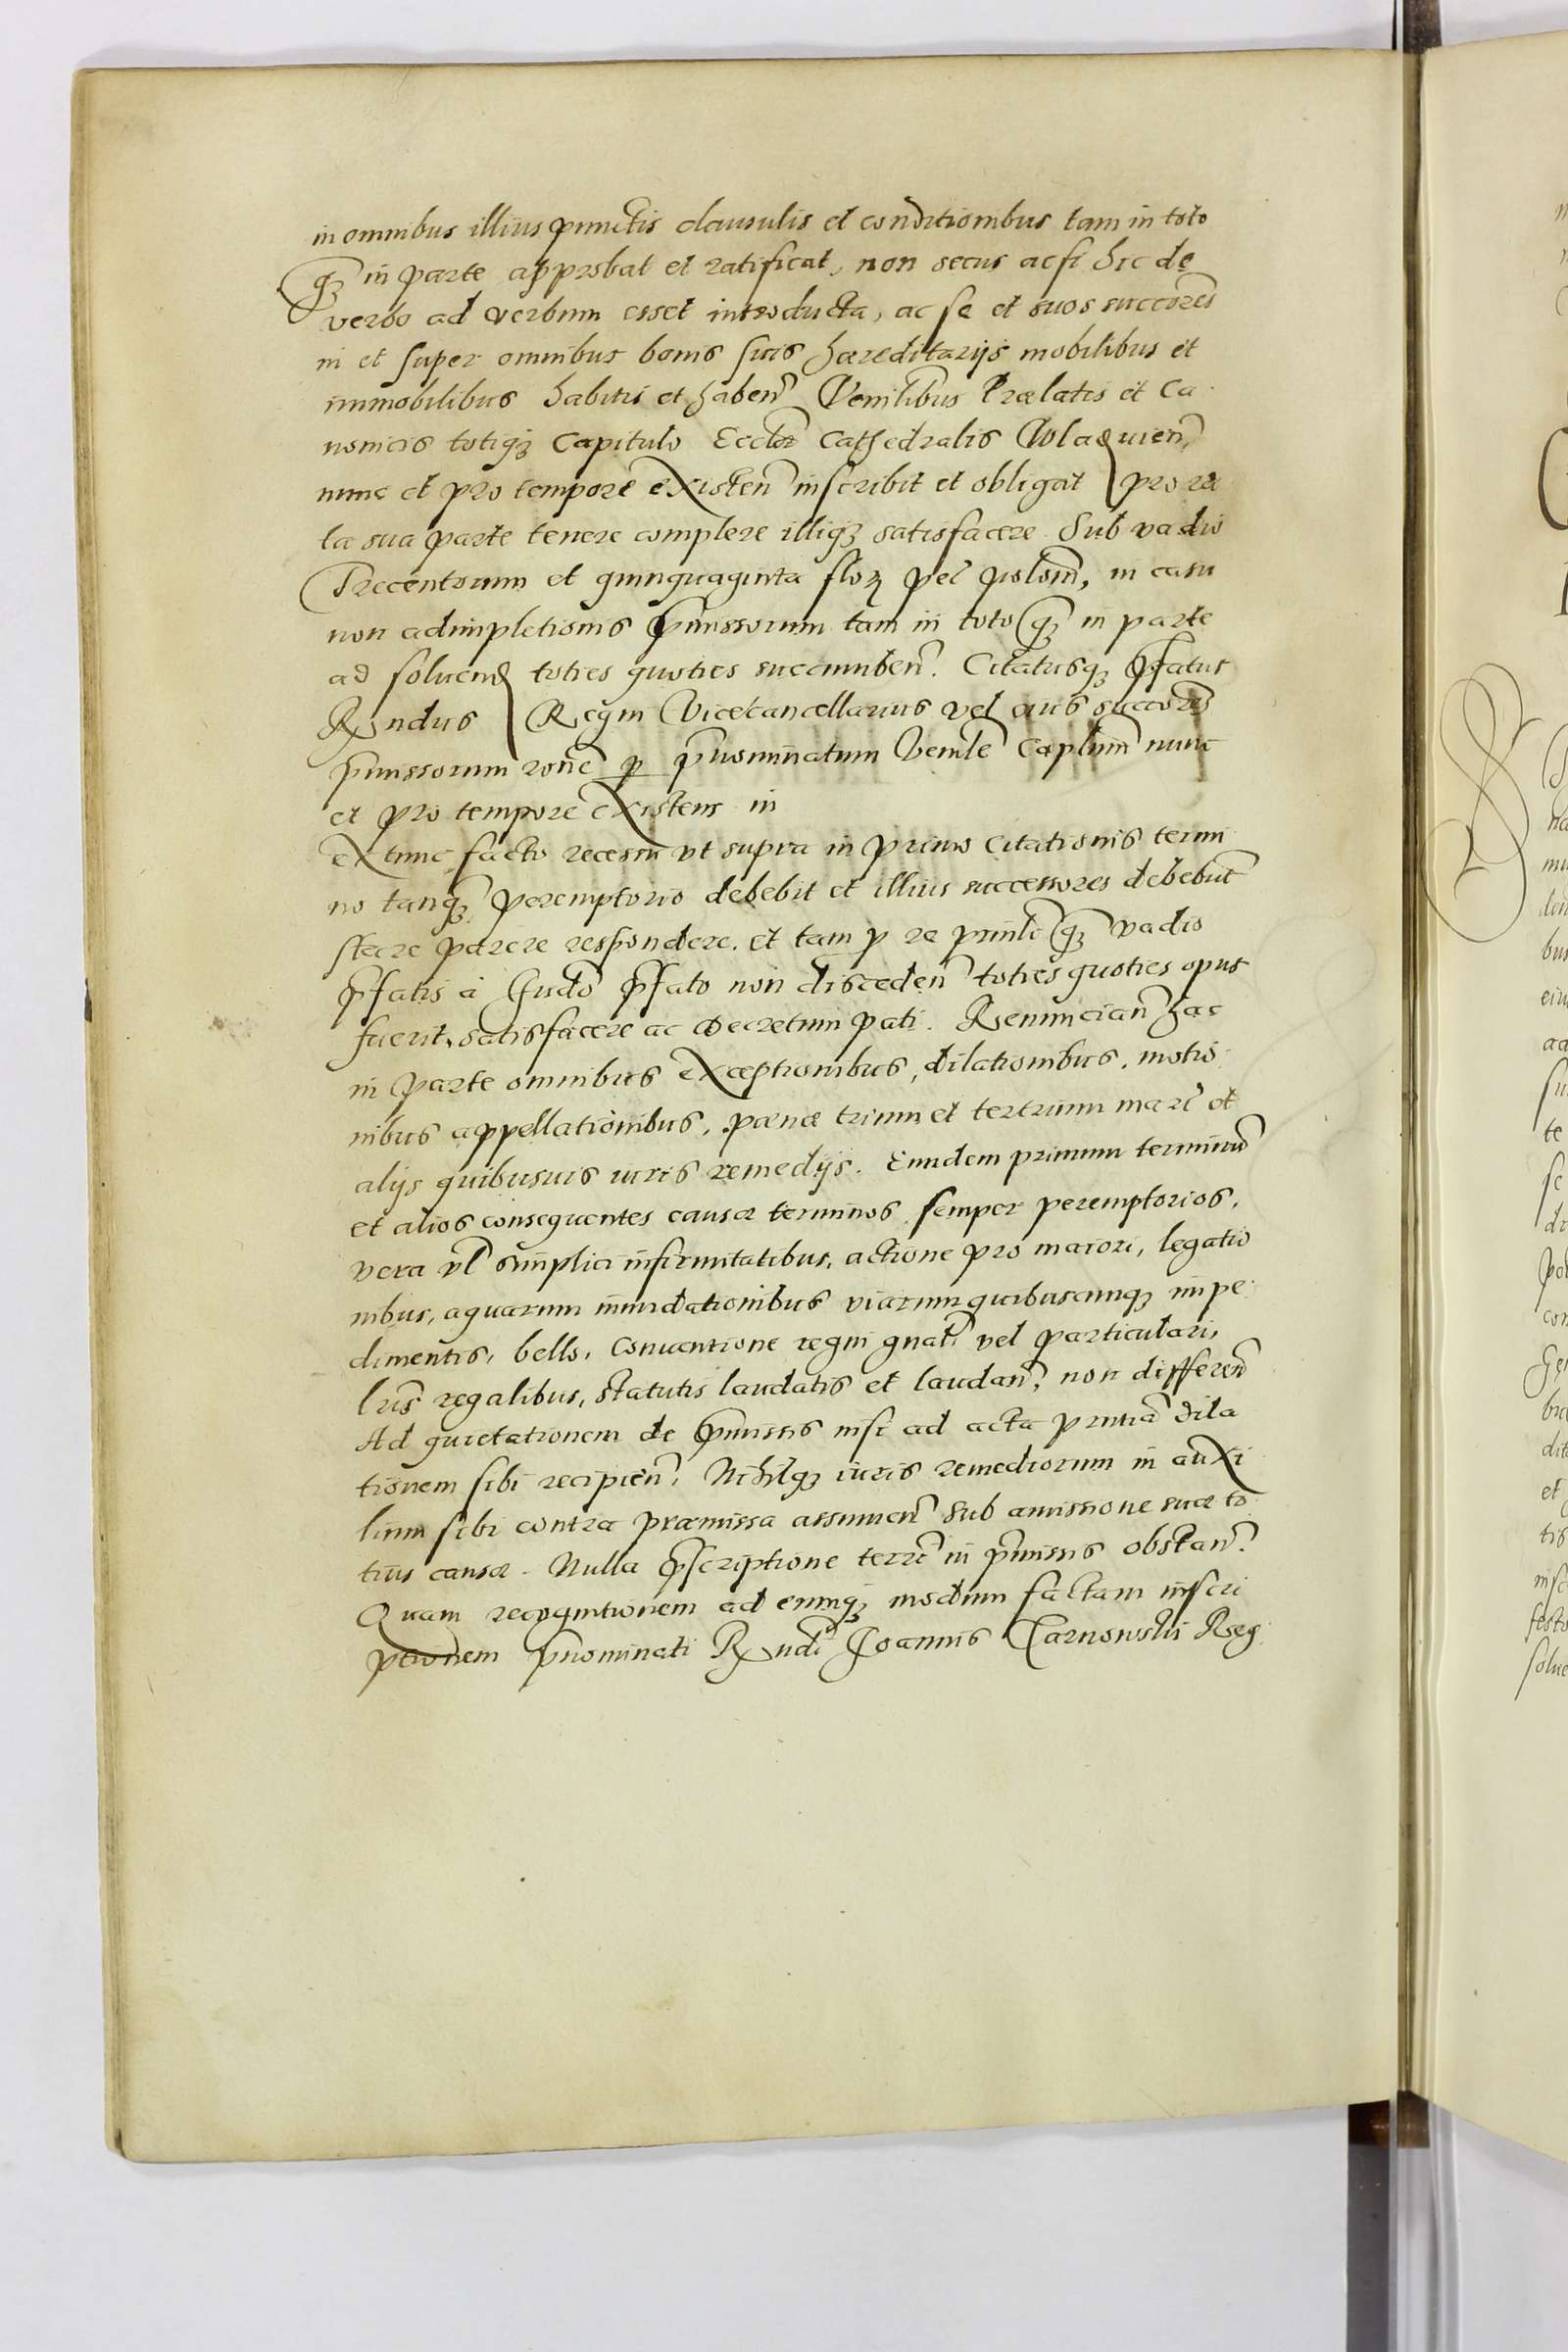 in omnibus illius punctis clausulis et conditionibus tam in toto
q̃ꝫ in parte approbat et ratificat, non secus acsi hic de
verbo ad verbum esset introducta, ac se et suos succores̃
in et super omnibus bonis suis hæreditarijs mobilibus et
immobilibus habitis et haben̄ Venilibus Prælatis et Ca
nonicis totiqꝫ Capitulo Eccłæ Cathedralis Wladwien̄
nunc et pro tempore existen̄ inscribit et obligat pro ra
ta sua parte tenere complere illiqꝫ satisfacere. Sub vadio
Trecentorum et quinquaginta floꝝ pel̄ polon̄, in casu
non adimpletionis p̃missorum tam in toto q̃ꝫ in parte
ad soluend̄ toties quoties succumben̄. Citatusqꝫ p̃fatus
Rndus Regni Vicecancellarius vel eius succores̃
p̃missorum rone ꝑ p̃nominatum Venile Caplum nunc
et pro tempore existens in
extunc facto recessu vt supra in primo citationis termi
no tanq̃ꝫ peremptorio debebit et illius successores debebut̄
stare parere respondere. et tam p re prinłi q̃ꝫ vadio
p̃fatis à Iudo p̃fato non discedeñ toties quoties opus
fuerit, satisfacere ac decretum pati. Renuncian̄ hac
in parte omnibus exceptionibus, dilationibus, motio
nibus appellationibus, pœnæ trium et tertrium marc̄ et
alijs quibusuis iuris remedijs. Eundem primum terminu̅
et alios consequentes causæ terminos semper peremptorios,
vera vł simplici infirmitatibus, actione pro maiori, legatio
nibus, aquarum inundationibus viarum quibuscunqꝫ impe
dimentis, bello, conuentione regni gnałi vel particulari,
lr̄is regalibus, statutis laudatis et laudan̄, non differen̄
Ad quietationem de p̃missis nisi ad acta p̃ntia dila
tionem sibi recipien̄. Nihilqꝫ iuris remediorum in auxi
lium sibi contra præmissa assumen̄ sub amissione suæ to
tius causæ. Nulla p̃scriptione terrẽ in p̃missis obstan̄.
Quam recognitionem ad eumqꝫ modum factam inscri
ptionem p̃nominati Rndi Joannis Tarnowski Reg